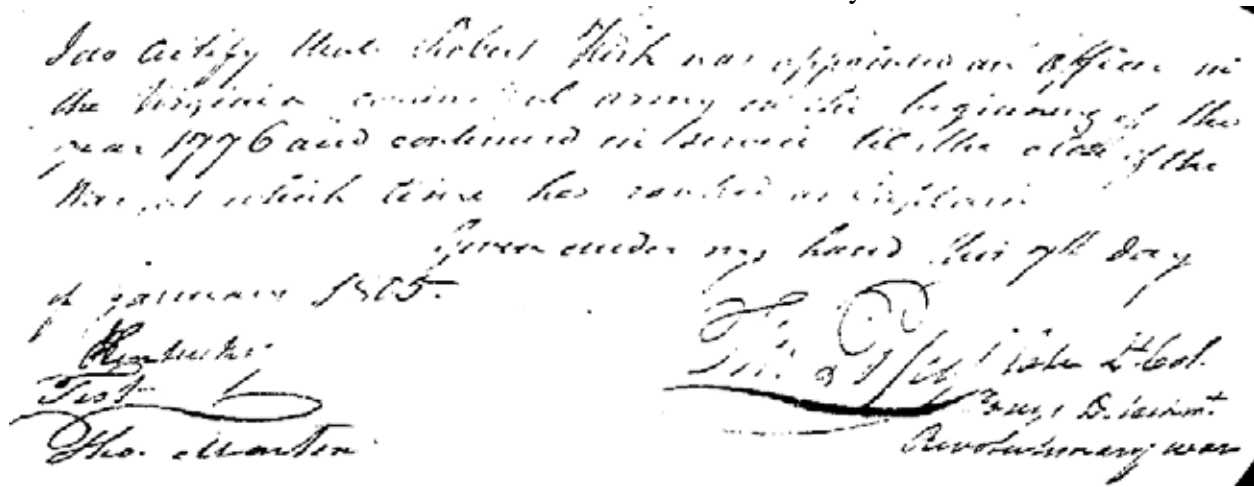 I do certify that Robert Kirk was appointed an officer in
the Virginia continental army in the beginning of the
year 1776 and continued in service til the close of the
War, at which time he ranked as captain
Given under my hand this 7th day
of January 1805.
Kentucky
Test
Lt Col.
Tho. Martin
Revolutionary war